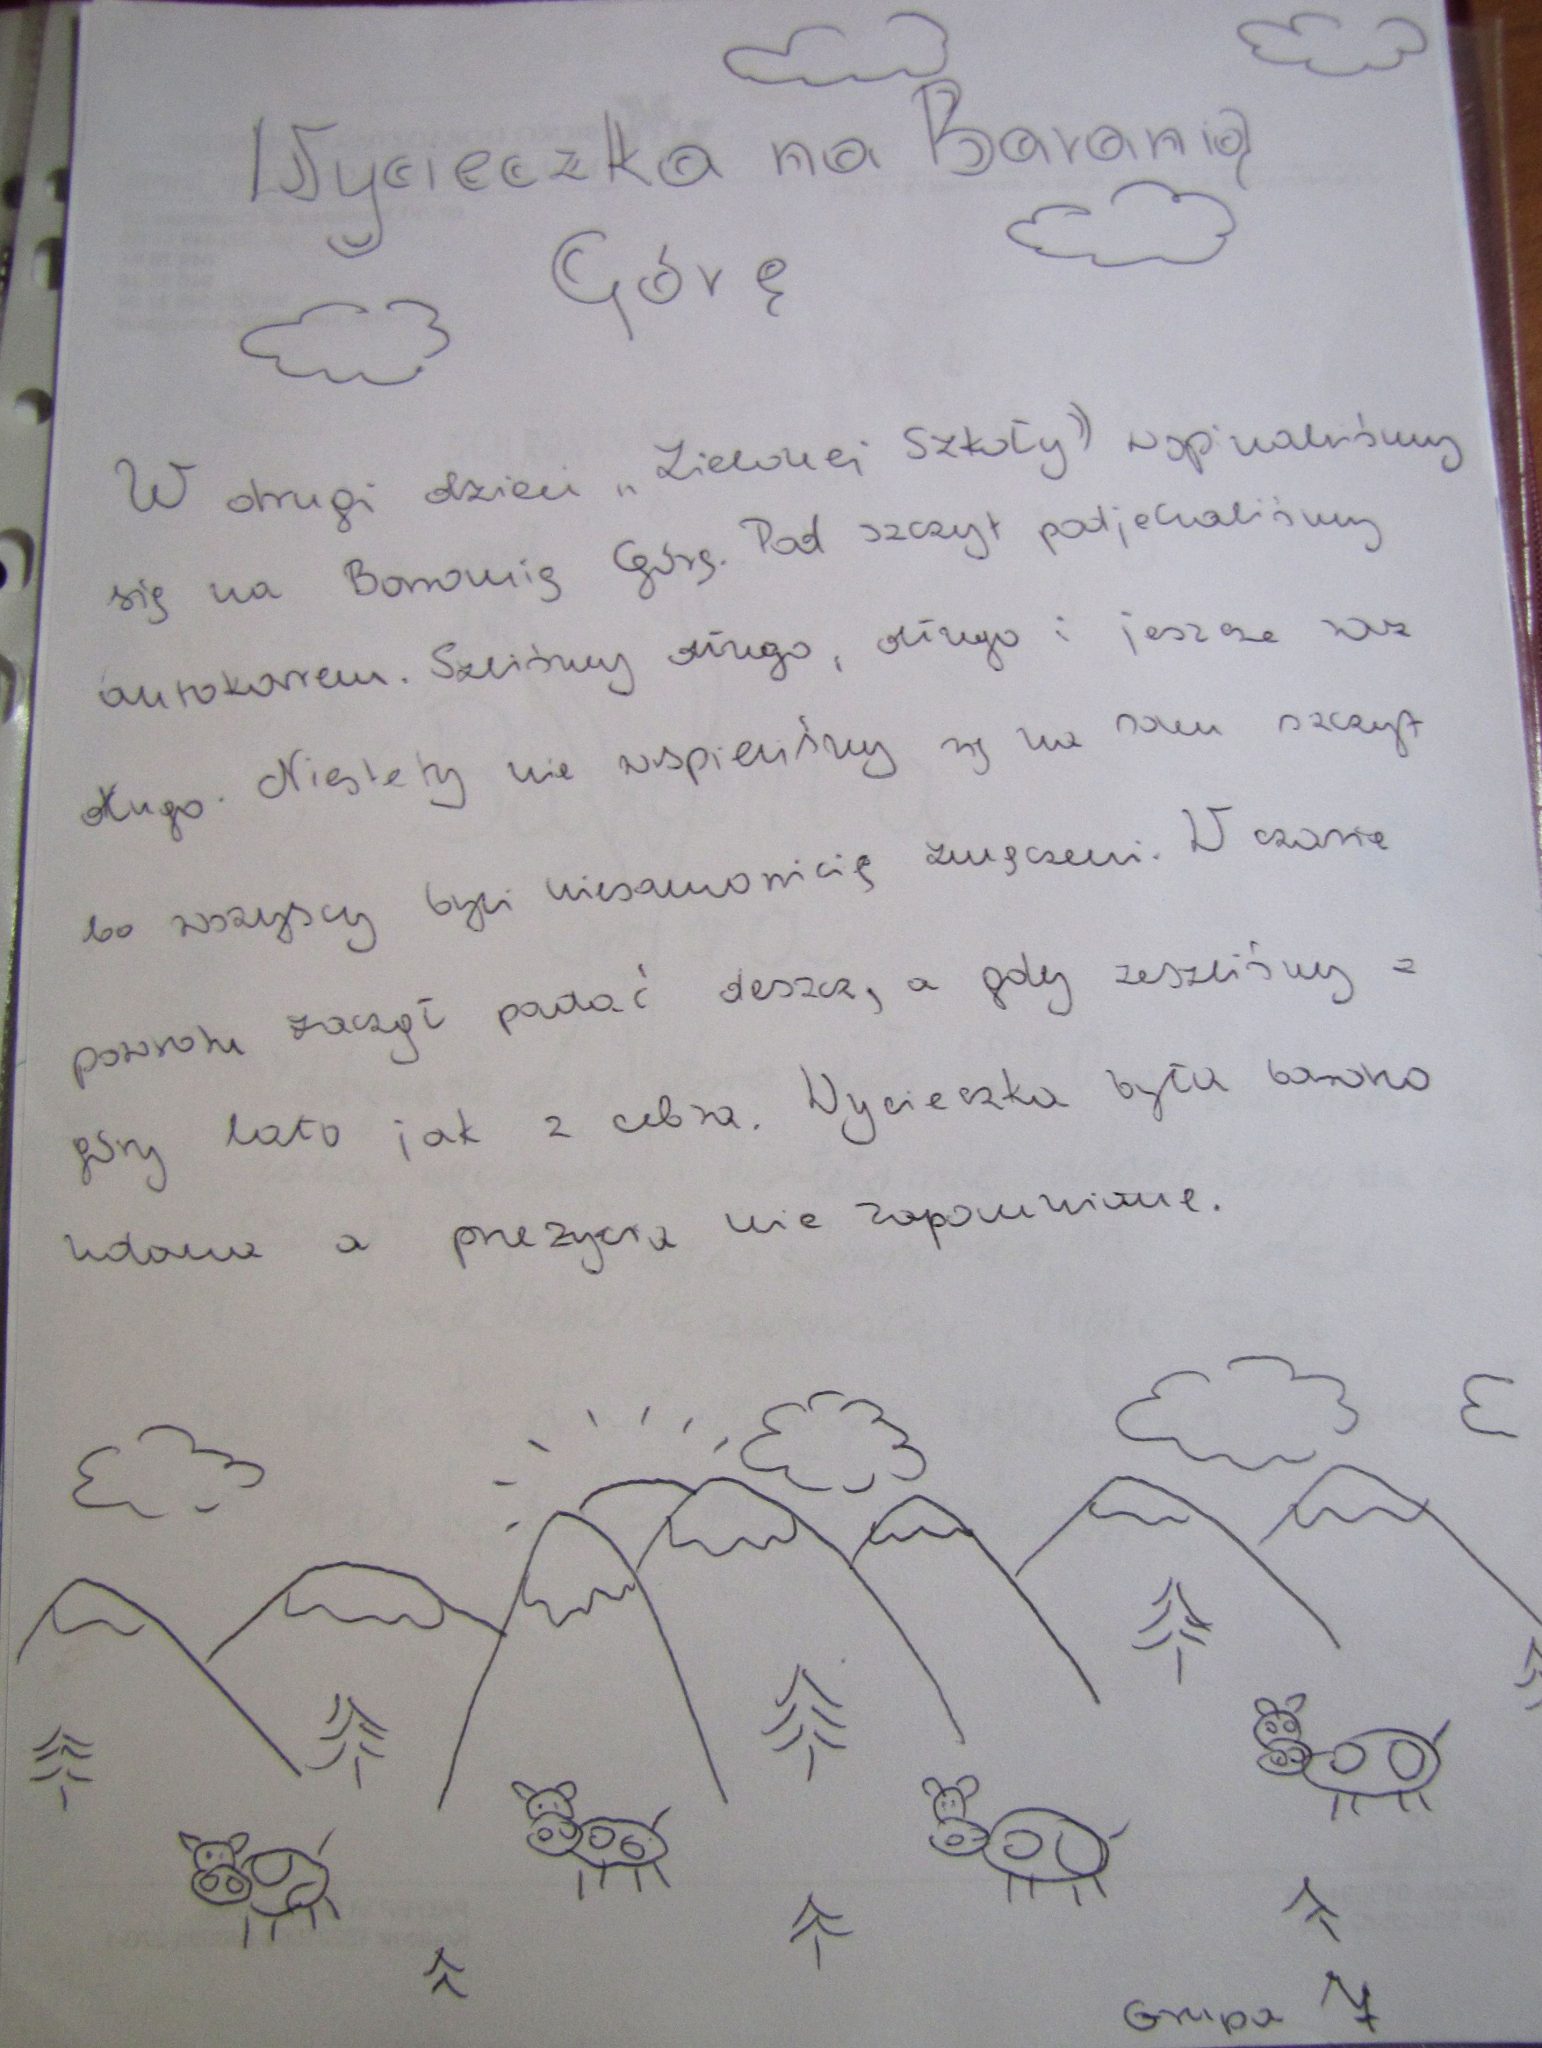 Wycieczka na Baranią
Górę
W drugi dzień „Zielonej Szkoły" wspinaliśmy
się na Baranią Górę. Pod szczyt podjechaliśmy
autokarem. Szliśmy długo, długo i jeszcze raz
długo. Niestety nie wspieliśmy się na sam szczyt
bo wszyscy byli niesamowicię zmęczeni. W czasie
powrotu zaczął padać deszcz, a gdy zeszliśmy z
góry lało jak z cebra. Wycieczka była bardzo
udana a przeżycia nie zapomniane.
Grupa 7